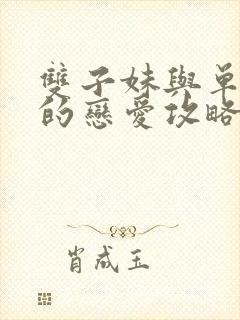 雙子妹與單
的戀愛攻略
肖成玉